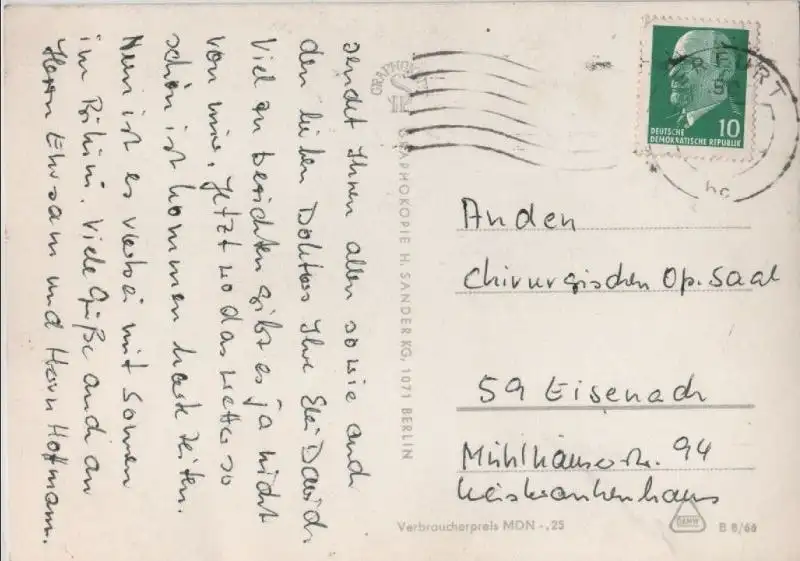 sendet Ihnen allen sowie auch
den lieben Doktors Ihre Elli David.
Viel zu berichten gibt es ja nicht
von mir. Jetzt wo das Wetter so
schön ist kommen harte Zeiten.
Nun ist es vorbei mit Sonnen
im Bikini. Viele Grüße auch an
Herrn Ehrsam und Herrn Hofmann.
GRAPHOKOPIE H. SANDER KG, 1071 BERLIN
Verbraucherpreis MDN -,25
DEUTSCHE
DEMOKRATISCHE REPUBLIK
10
ERFURT
5
hc
An den
Chirurgischen Op. Saal
59 Eisenach
Mühlhäuserstr. 94
Kreiskrankenhaus
B 8/66